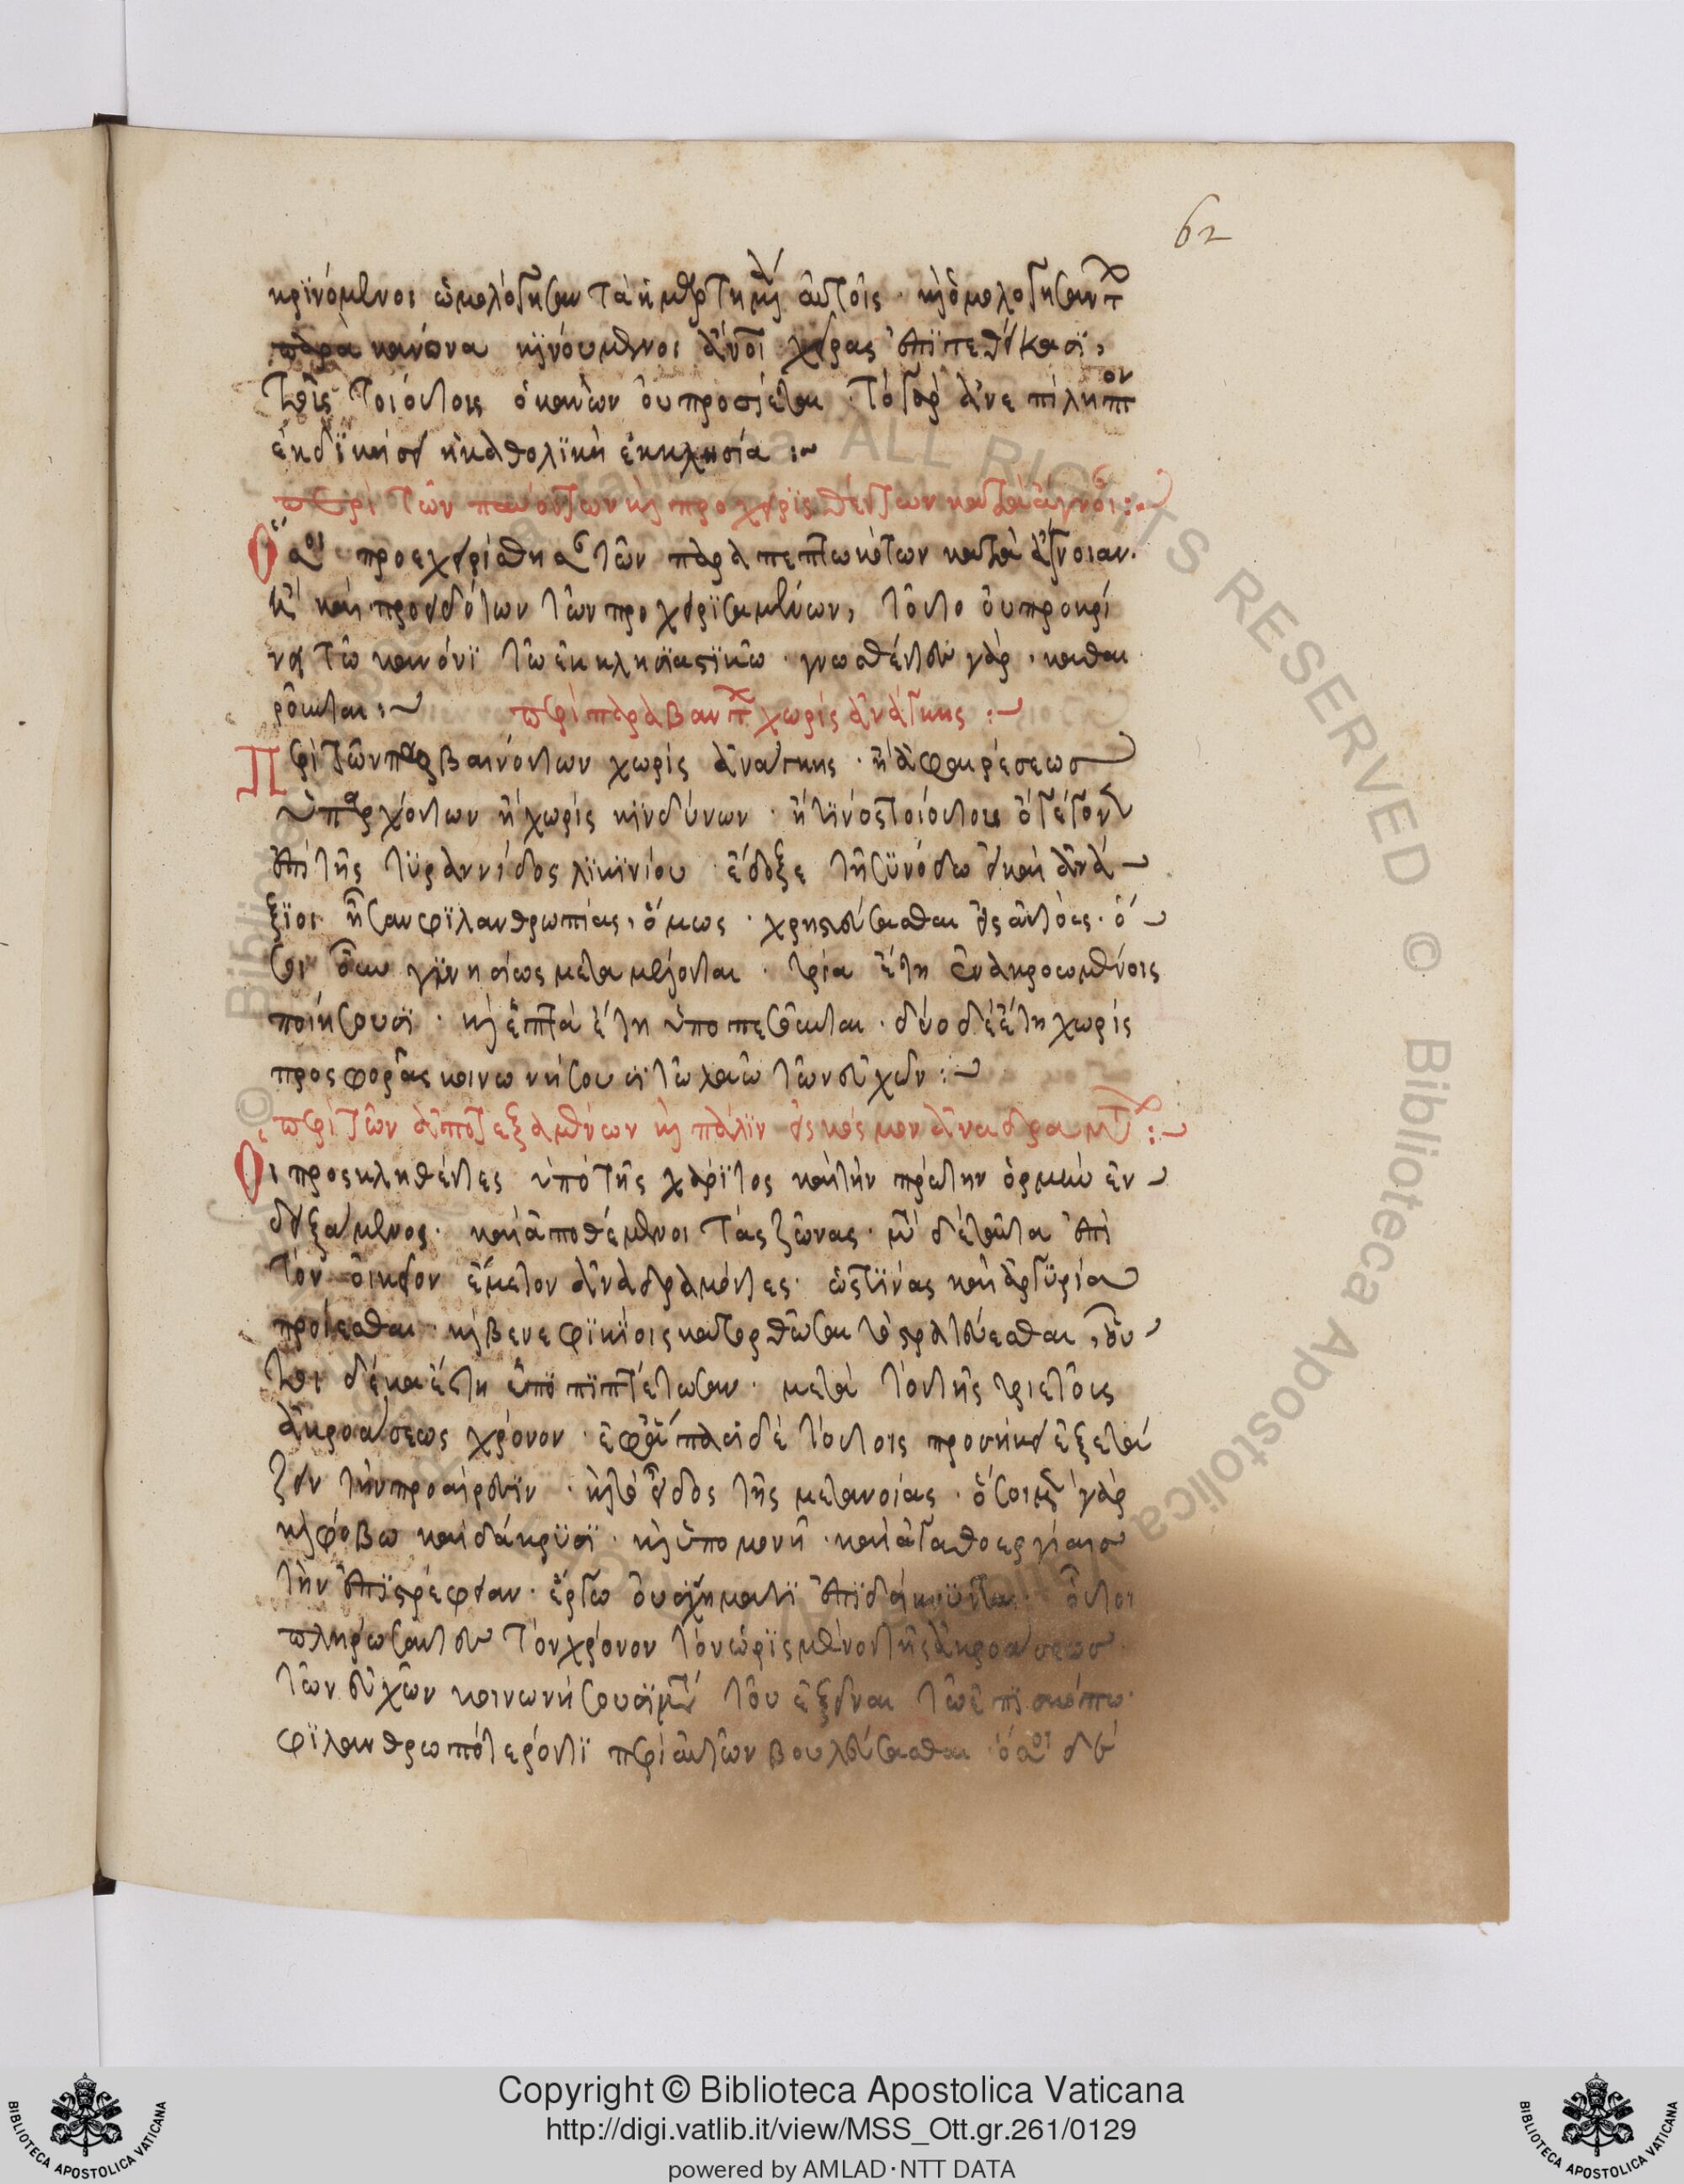 62
κρϊνόμενοι ὡμολόγησαν τὰ ἡμαρτημένα αὐτοῖς · καὶ ὁμολογησάντων
παρὰ κανόνα κϊνούμενοι ἄνοι χεῖρας ἐπϊτεθείκασϊ,
τοῖς τοιούτοις ὁ κανὼν οὐ προσίεται · τὸ γὰρ ἀνεπίληπτον
ἐκδϊκεῖ ἡ καθολϊκὴ ἐκκλησία :~
περὶ τῶν πεσόντων καὶ προχειρϊσθέντων κατὰ ἄγνοι :~
Ὅσοι προεχειρίσθησαν τῶν παραπεπτωκότων κατὰ ἄγνοιαν·
ἢ καὶ προειδότων τῶν προχειρϊσαμένων, τοῦτο οὐ προκρί
νει τῶ κανόνϊ τῶ ἐκκλησϊαστϊκῶ · γνωσθέντες γὰρ · καθαι
ροῦνται :~ περὶ παραβάντων χωρὶς ἀνάγκης :~
Περὶ τῶν παραβαινόντων χωρὶς ἀνάγκης · ἢ ἀφαιρέσεως
ὑπαρχόντων ἢ χωρὶς κϊνδύνων · ἤ τϊνος τοιούτου ὃ γέγονεν
ἐπὶ τῆς τϋραννίδος λϊκϊνίου ἔδοξε τῆ σϋνόδω εἰ καὶ ἀνά
ξϊοι ἦσαν φϊλανθρωπίας, ὅμως · χρηστεύσασθαι εἰς αὐτούς · ὅ
σοι οὖν γϊνησίως μεταμέλονται · τρία ἔτη ἐν ἀκροωμένοις
ποιήσουσϊ · καὶ ἑπτὰ ἔτη ὑποπεσοῦνται · δύο δὲ ἔτη χωρὶς
προσφορᾶς κοινωνήσουσϊ τῶ λαῶ τῶν εὐχῶν :~
περὶ τῶν ἀποταξαμένων καὶ πάλϊν εἰς κόσμον ἀναδραμόντων :~
Οἱ προσκληθέντες ὑπὸ τῆς χάρϊτος καὶ τὴν πρώτην ὁρμὴν ἐν
δειξάμενος · καὶ ἀποθέμενοι τὰς ζώνας · μετὰ δὲ ταῦτα ἐπὶ
τὸν οἰκεῖον ἔμετον ἀναδραμόντες · ὥς τϊνας καὶ ἀργϋρία
προίεσθαι · καὶ βενεφϊκϊοις κατορθῶσαι τὸ στρατεύεσθαι, οὗ
τοι δέκα ἔτη ὑποπϊπτέτωσαν · μετὰ τὸν τῆς τριετοῦς
ἀκροάσεως χρόνον · ἐφ' ἅπασι δὲ τούτοις προσήκει ἐξετά
ζειν τὴν προαίρεσϊν · καὶ τὸ εἶδος τῆς μετανοίας · ὅσοι μὲν γὰρ
καὶ φόβω καὶ δάκρϋσϊ · καὶ ὑπομονῆ · καὶ ἀγαθοεργίαις
τὴν ἐπϊστρέφειαν · ἔργω οὐ σχήματϊ ἐπϊδείκνϋνται · οὗτοι
πληρώσαντες τὸν χρόνον τὸν ὡρϊσμένον τῆς ἀκροάσεως ·
τῶν εὐχῶν κοινωνήσουσϊ μετὰ τοῦ ἐξεῖναι τῶ ἐπϊσκόπω·
φϊλανθρωπότερόν τϊ περὶ αὐτῶν βουλεύσασθαι ὅσοι δὲ
Copyright © Biblioteca Apostolica Vaticana
http://digi.vatlib.it/view/MSS_Ott.gr.261/0129
powered by AMLAD·NTT DATA